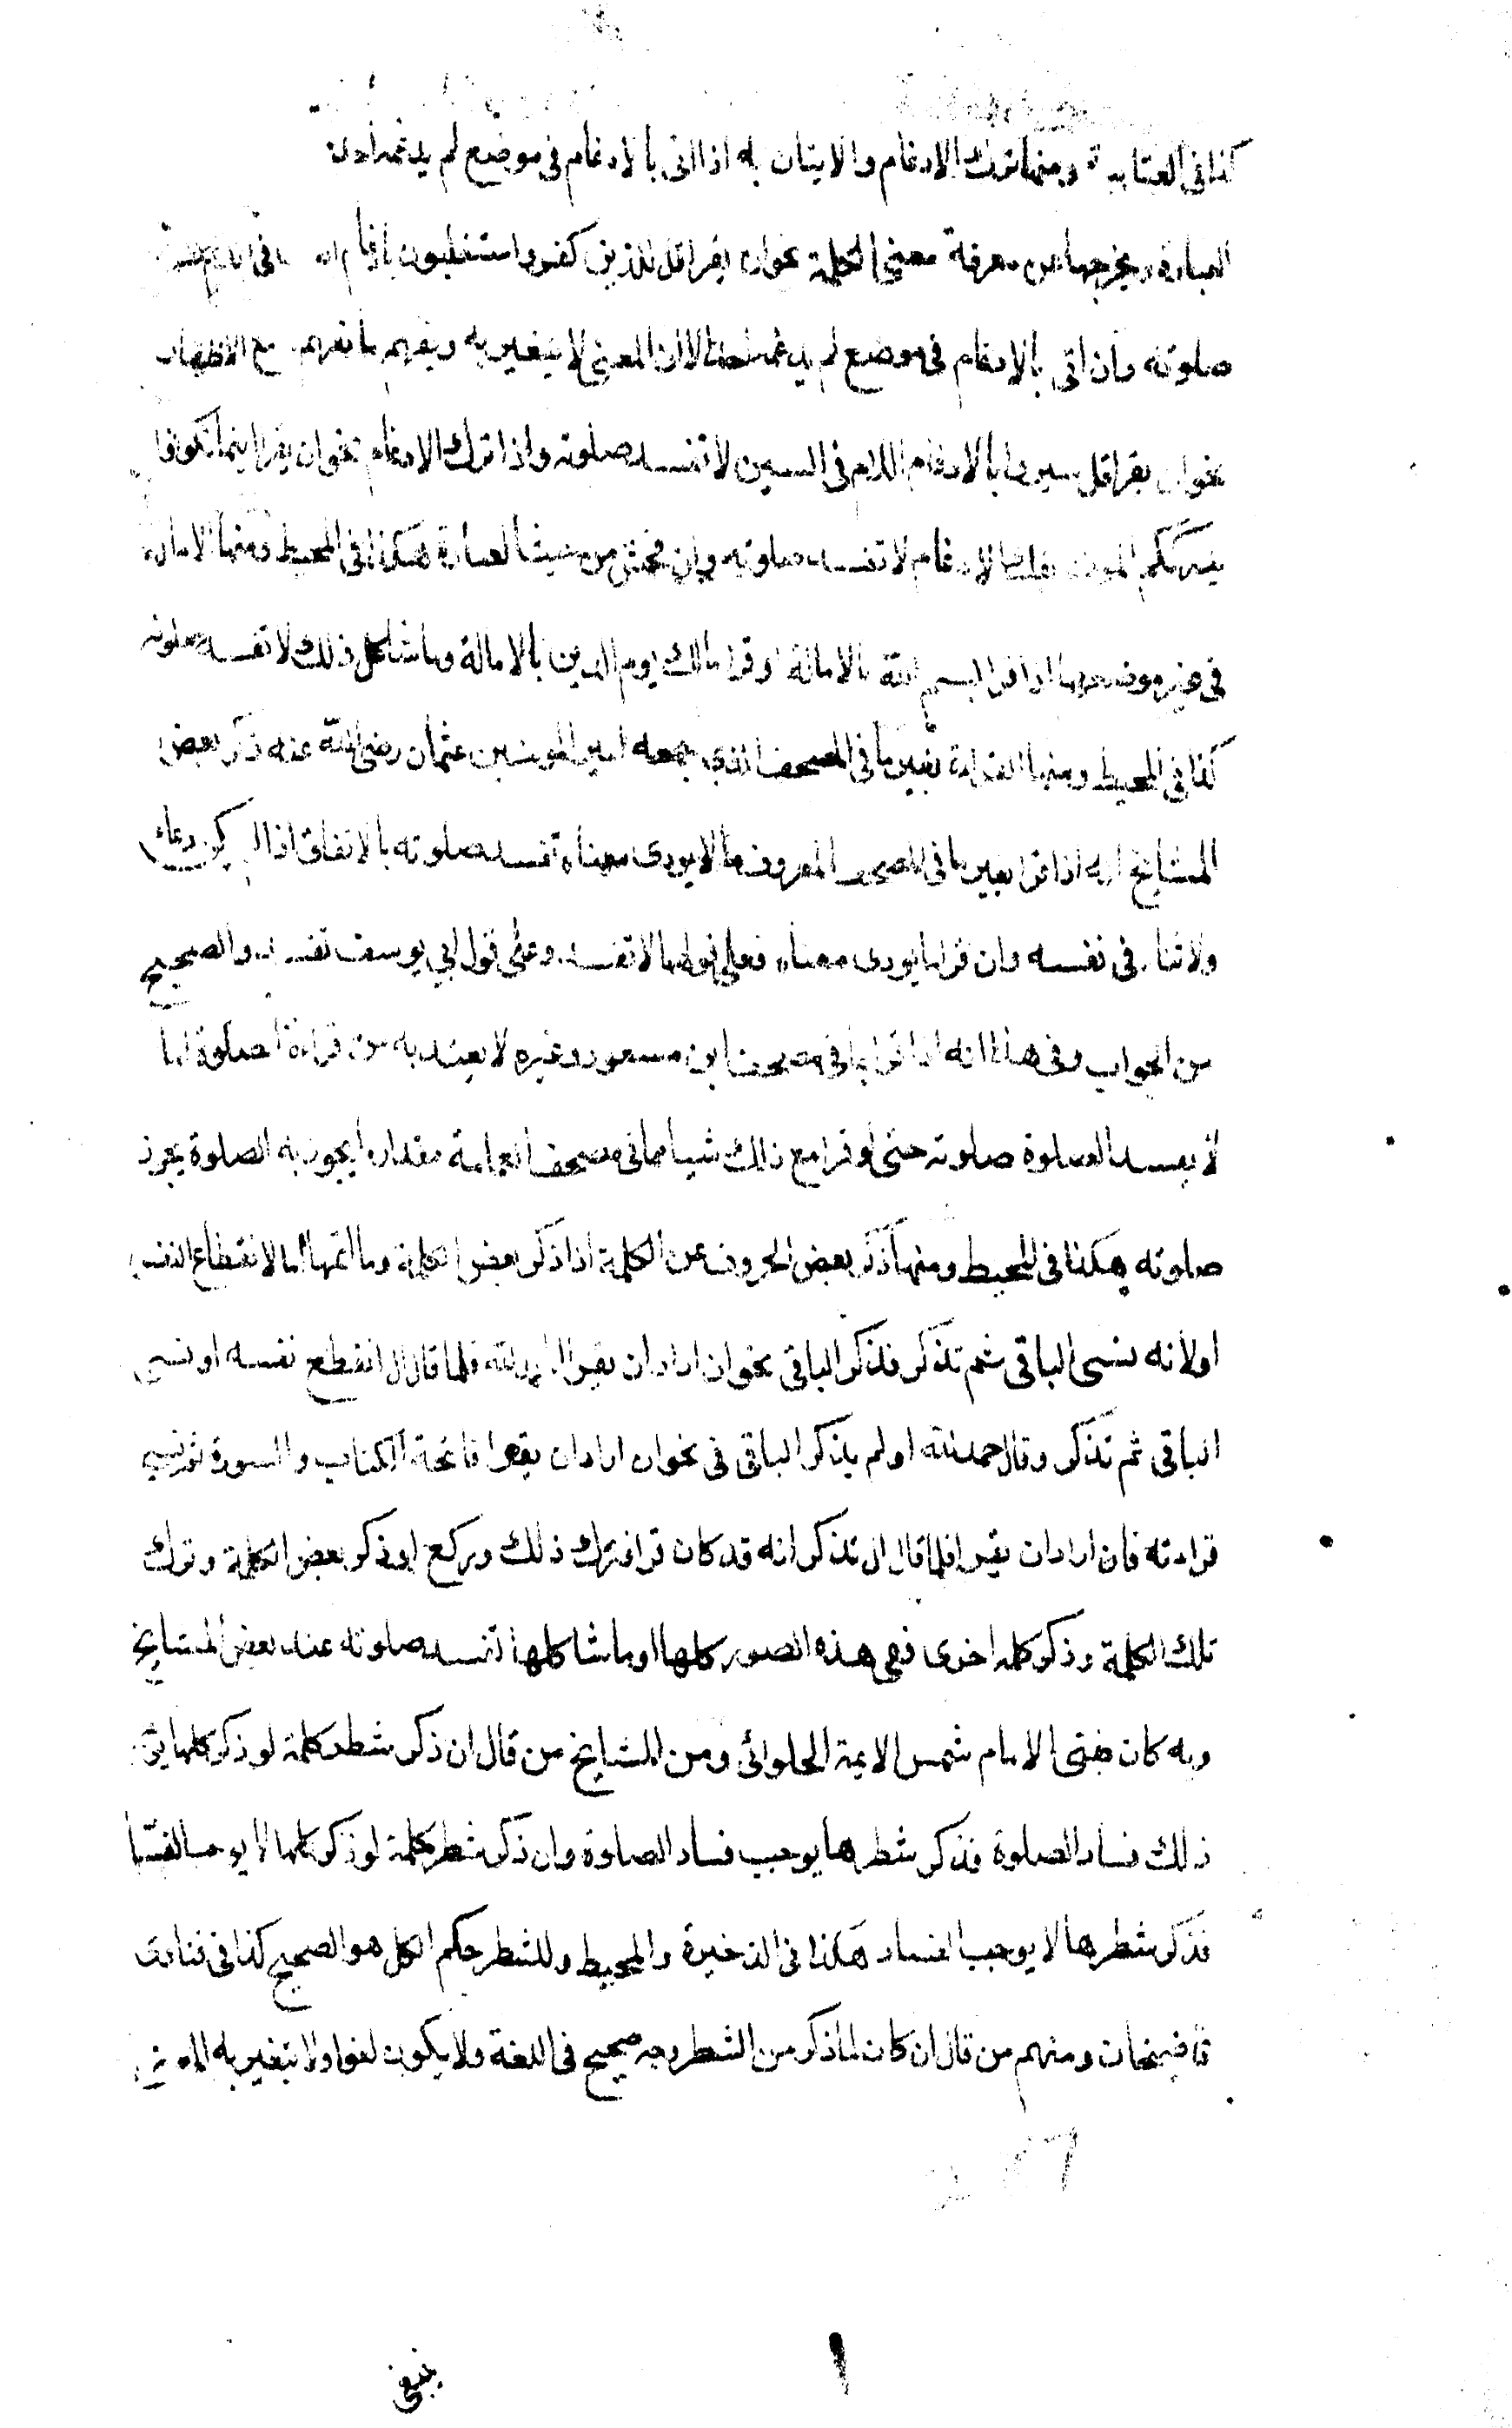 كذا في العتابية ومنها ترك الادغام والاتيان به اذا اتى بالادغام في موضع لم يدغمه احد
العبارة ويخرجها عن معرفة معنى الكلمة نحو ان يقرا قل للذين كفروا ستغلبون بادغام
صلوته وان اتى بالادغام في موضع لم يدغمه احد الا ان المعنى لا يتغير به ويفهم ما يفهم مع الاظهار
نحو ان يقرا قل سيروا بالادغام اللام في السين لا تفسد صلوته واذا ترك الادغام نحو ان يقرا اينما تكونوا
يدرككم الموت الادغام لا تفسد صلوته وان فحش من حيث العبارة هكذا في المحيط ومنها الاماله
في غير موضعها اذا قرا بسم الله بالامالة او قرا مالك يوم الدين بالامالة وما شاكل ذلك لا تفسد صلوته
كذا في المحيط ومنها القراءة بغير ما في المصحف الذي جمعه امير المومنين عثمان رضى الله عنه ذكر بعض
المشايخ انه اذا قرا بغير ما في المصحف المعروف ما لا يودى معناه تفسد صلوته بالاتفاق اذا لم يكن دعاء
ولا ثناء في نفسه وان قرا ما يودى معناه فعلى قولهما لا تفسد وعلى قول ابي يوسف تفسد والصحيح
من الجواب في هذا انه اذا قرا بما في مصحف ابن مسعود وغيره لا يعتد به من قراءة الصلوة اما
لا يفسد الصلوة صلوته حتى لو قرا مع ذلك شيا مما في مصحف العامة مقدار ما يجوز به الصلوة يجوز
صلوته هكذا في المحيط ومنها ذكر بعض الحروف من الكلمة اذا ذكر بعض الكلمة وما اتمها اما لانقطاع النفس
او لانه نسى الباقى ثم تذكر فذكر الباقي نحو ان اراد ان يقرا الحمد لله فلما قال ال انقطع نفسه او نسى
الباقي ثم تذكر وقال حمد لله او لم يذكر الباقي في نحو ان اراد ان يقرا فاتحة الكتاب والسورة ثم نسى
قراءته فان اراد ان يقرا فلما قال ال تذكر انه قد كان قرا فترك ذلك وركع او ذكر بعض الكلمة وترك
تلك الكلمة وذكر كلمه اخرى ففي هذه الصور كلها او ما شاكلها تفسد صلوته عند بعض المشايخ
وبه كان يفتى الامام شمس الايمة الحلوائى ومن المشايخ من قال ان ذكر شطر كلمة لو ذكر كلها يوجب
ذلك فساد الصلوة فذكر شطرها يوجب فساد الصلوة وان ذكر شطر كلمة لو ذكر كلها لا يوجب الفساد
فذكر شطرها لا يوجب الفساد هكذا في الذخيرة والمحيط وللشطر حكم الكل هو الصحيح كذا في فتاوى
قاضيخان ومنهم من قال ان كان لما ذكر من الشطر وجه صحيح في اللغة ولا يكون لغوا ولا يتغير به المعنى
ينبغي